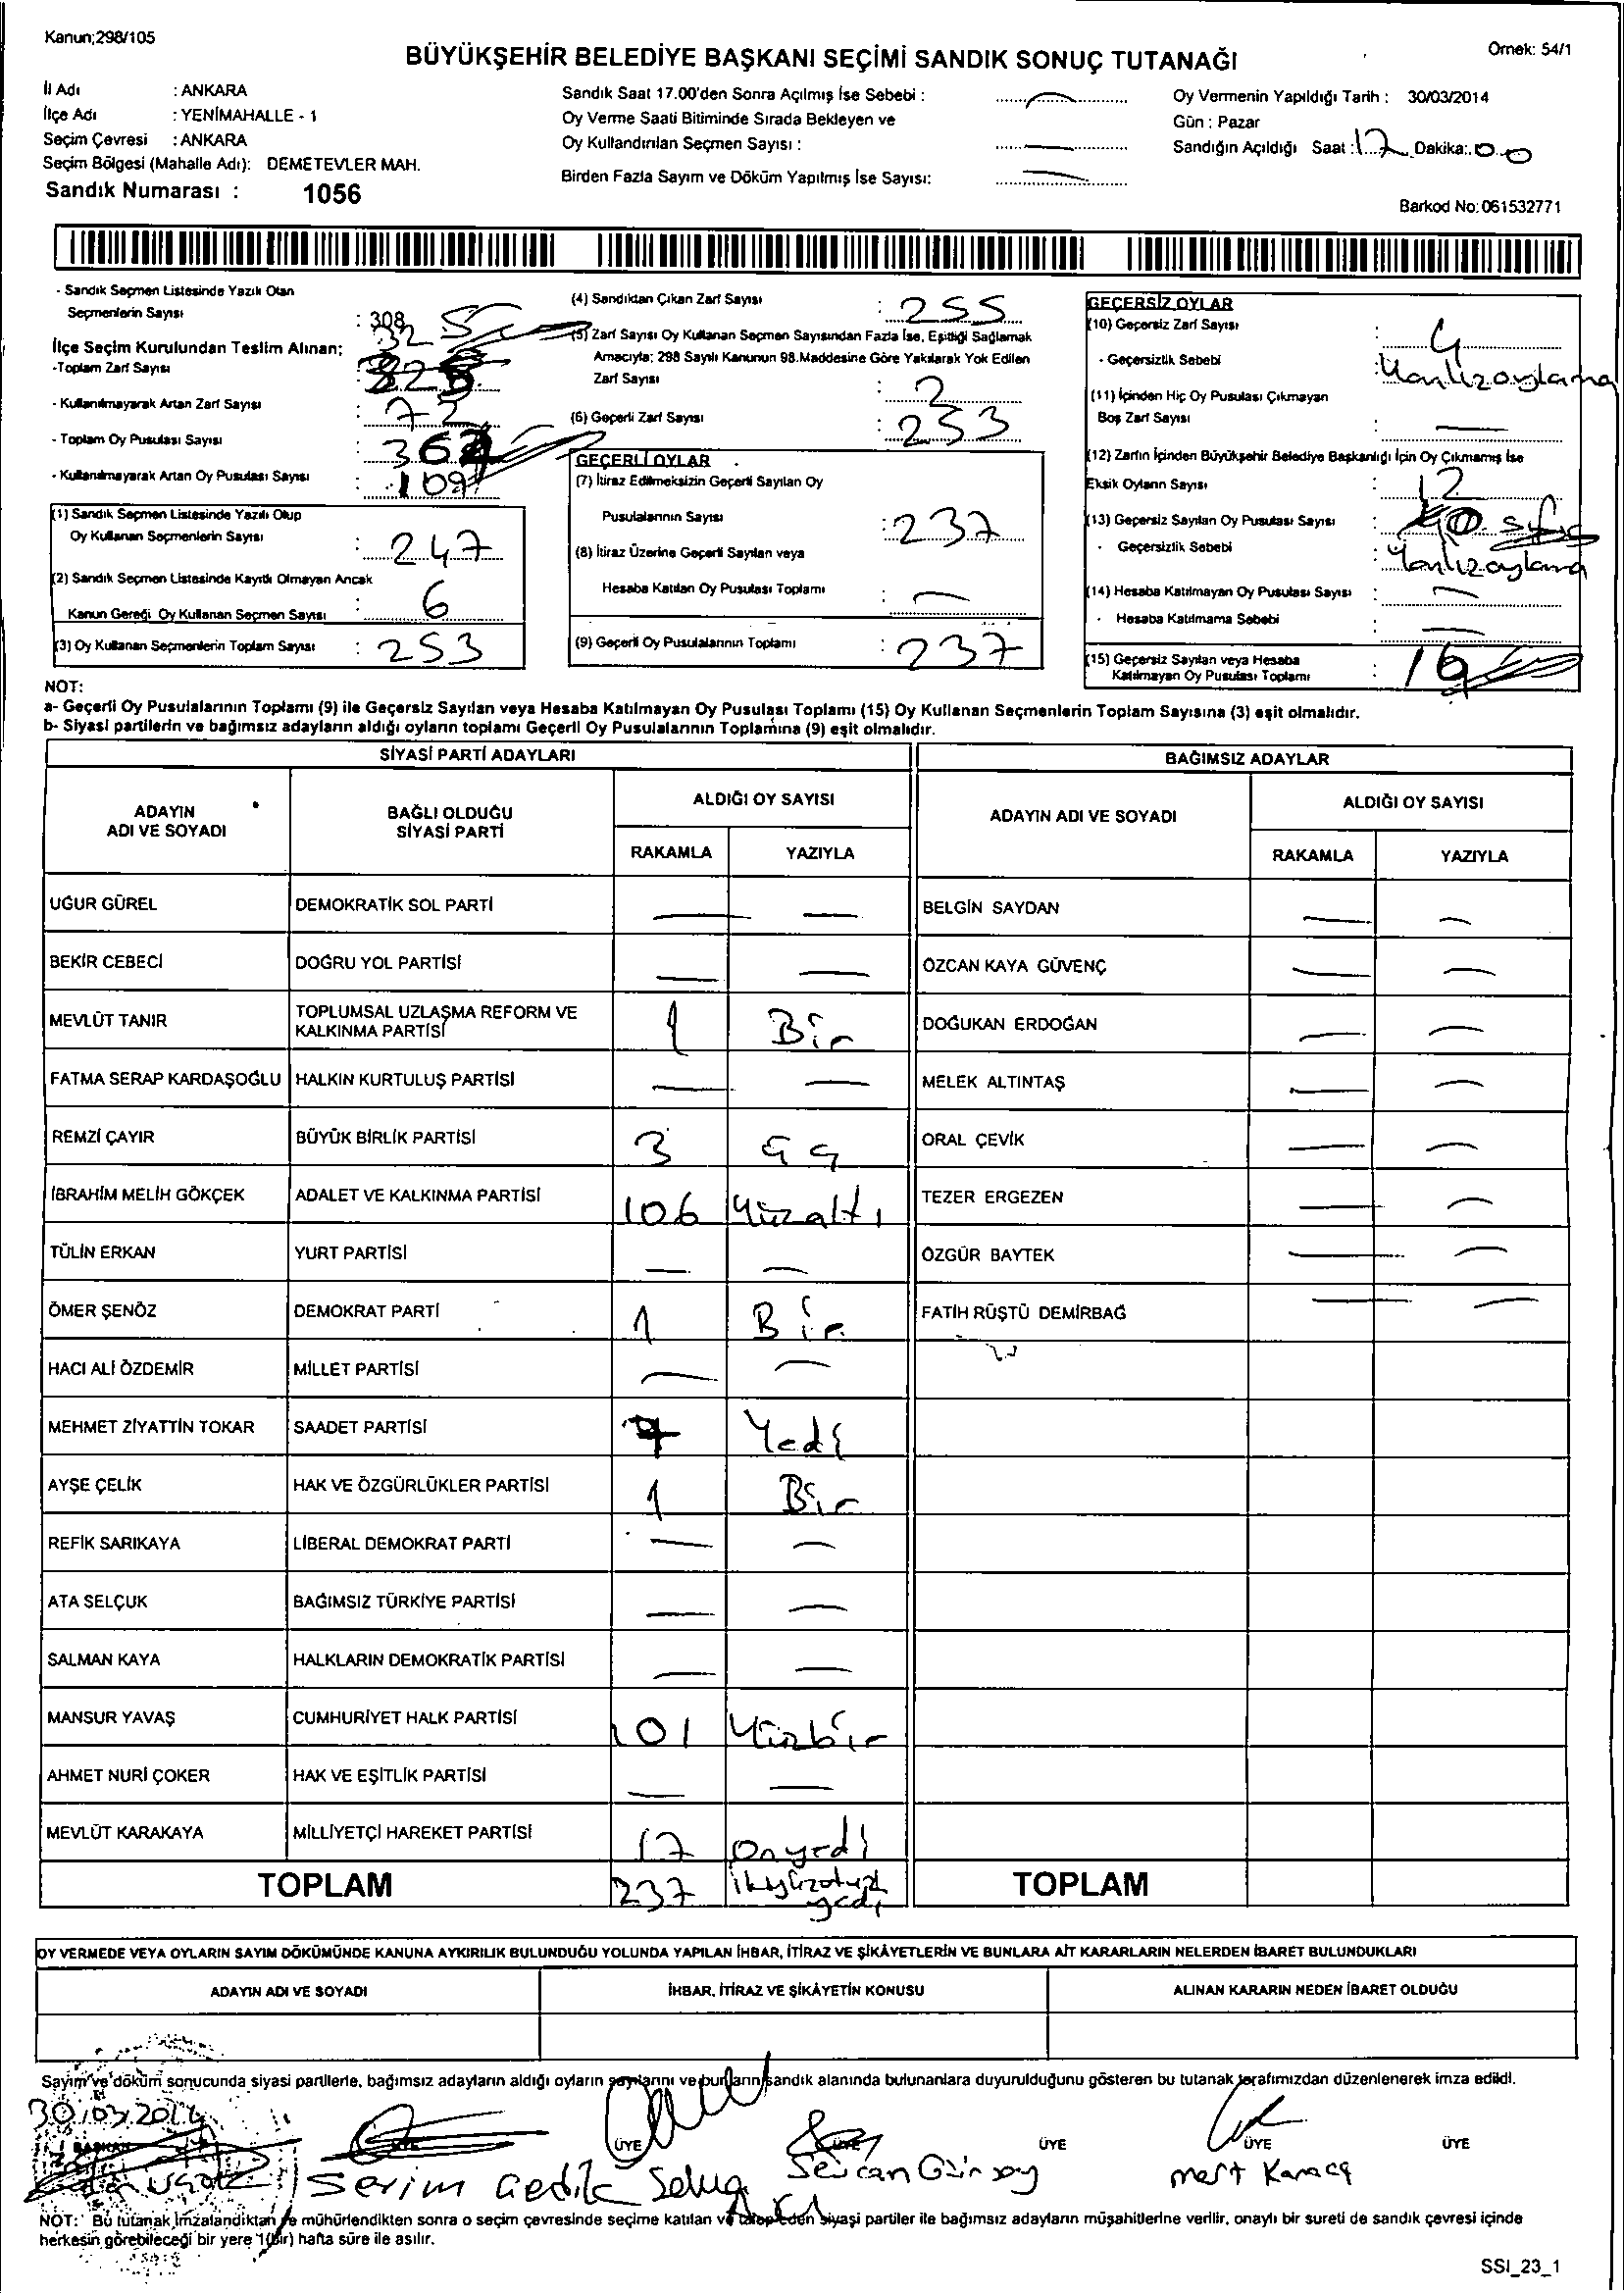 Kanun;298/105
Örnek: 54/1
BÜYÜKŞEHİR BELEDİYE BAŞKANI SEÇİMİ SANDIK SONUÇ TUTANAĞI
İl Adı : ANKARA
İlçe Adı : YENİMAHALLE - 1
Seçim Çevresi : ANKARA
Seçim Bölgesi (Mahalle Adı): DEMETEVLER MAH.
Sandık Numarası : 1056
Sandık Saat 17.00'den Sonra Açılmış İse Sebebi :
Oy Verme Saati Bitiminde Sırada Bekleyen ve
Oy Kullandırılan Seçmen Sayısı :
Birden Fazla Sayım ve Döküm Yapılmış İse Sayısı:
Oy Vermenin Yapıldığı Tarih : 30/03/2014
Gün : Pazar
Sandığın Açıldığı Saat : 17 Dakika: 00
Barkod No:061532771
- Sandık Seçmen Listesinde Yazılı Olan
Seçmenlerin Sayısı : 308
İlçe Seçim Kurulundan Teslim Alınan:
-Toplam Zarf Sayısı : 325
- Kullanılmayarak Artan Zarf Sayısı : 72
- Toplam Oy Pusulası Sayısı :
- Kullanılmayarak Artan Oy Pusulası Sayısı :
(1) Sandık Seçmen Listesinde Yazılı Olup
Oy Kullanan Seçmenlerin Sayısı : 247
(2) Sandık Seçmen Listesinde Kayıtlı Olmayan Ancak
Kanun Gereği, Oy Kullanan Seçmen Sayısı : 6
(3) Oy Kullanan Seçmenlerin Toplam Sayısı : 253
(4) Sandıktan Çıkan Zarf Sayısı : 255
(5) Zarf Sayısı Oy Kullanan Seçmen Sayısından Fazla İse, Eşitliği Sağlamak
Amacıyla; 298 Sayılı Kanunun 98.Maddesine Göre Yakılarak Yok Edilen
Zarf Sayısı : 2
(6) Geçerli Zarf Sayısı : 253
GEÇERLİ OYLAR
(7) İtiraz Edilmeksizin Geçerli Sayılan Oy
Pusulalarının Sayısı : 237
(8) İtiraz Üzerine Geçerli Sayılan veya
Hesaba Katılan Oy Pusulası Toplamı : —
(9) Geçerli Oy Pusulalarının Toplamı : 237
GEÇERSİZ OYLAR
(10) Geçersiz Zarf Sayısı : 4
- Geçersizlik Sebebi : Yanlızoylama
(11) İçinden Hiç Oy Pusulası Çıkmayan
Boş Zarf Sayısı : —
(12) Zarfın İçinden Büyükşehir Belediye Başkanlığı İçin Oy Çıkmamış İse
Eksik Oyların Sayısı : 12
(13) Geçersiz Sayılan Oy Pusulası Sayısı :
- Geçersizlik Sebebi : Yanlızoylama
(14) Hesaba Katılmayan Oy Pusulası Sayısı : —
- Hesaba Katılmama Sebebi : —
(15) Geçersiz Sayılan veya Hesaba
Katılmayan Oy Pusulası Toplamı : 16
NOT:
a- Geçerli Oy Pusulalarının Toplamı (9) ile Geçersiz Sayılan veya Hesaba Katılmayan Oy Pusulası Toplamı (15) Oy Kullanan Seçmenlerin Toplam Sayısına (3) eşit olmalıdır.
b- Siyasi partilerin ve bağımsız adayların aldığı oyların toplamı Geçerli Oy Pusulalarının Toplamına (9) eşit olmalıdır.
SİYASİ PARTİ ADAYLARI
ADAYIN ADI VE SOYADI
BAĞLI OLDUĞU SİYASİ PARTİ
ALDIĞI OY SAYISI
RAKAMLA YAZIYLA
UĞUR GÜREL DEMOKRATİK SOL PARTİ — —
BEKİR CEBECİ DOĞRU YOL PARTİSİ — —
MEVLÜT TANIR TOPLUMSAL UZLAŞMA REFORM VE KALKINMA PARTİSİ 1 Bir
FATMA SERAP KARDAŞOĞLU HALKIN KURTULUŞ PARTİSİ — —
REMZİ ÇAYIR BÜYÜK BİRLİK PARTİSİ 3
İBRAHİM MELİH GÖKÇEK ADALET VE KALKINMA PARTİSİ 106 Yüzaltı
TÜLİN ERKAN YURT PARTİSİ — —
ÖMER ŞENÖZ DEMOKRAT PARTİ 1 Bir
HACI ALİ ÖZDEMİR MİLLET PARTİSİ — —
MEHMET ZİYATTİN TOKAR SAADET PARTİSİ 7 Yedi
AYŞE ÇELİK HAK VE ÖZGÜRLÜKLER PARTİSİ 1 Bir
REFİK SARIKAYA LİBERAL DEMOKRAT PARTİ — —
ATA SELÇUK BAĞIMSIZ TÜRKİYE PARTİSİ — —
SALMAN KAYA HALKLARIN DEMOKRATİK PARTİSİ — —
MANSUR YAVAŞ CUMHURİYET HALK PARTİSİ 101 Yüzbir
AHMET NURİ ÇOKER HAK VE EŞİTLİK PARTİSİ — —
MEVLÜT KARAKAYA MİLLİYETÇİ HAREKET PARTİSİ 17 Onyedi
TOPLAM 237 ikiyüzotuz yedi
BAĞIMSIZ ADAYLAR
ADAYIN ADI VE SOYADI
ALDIĞI OY SAYISI
RAKAMLA YAZIYLA
BELGİN SAYDAN — —
ÖZCAN KAYA GÜVENÇ — —
DOĞUKAN ERDOĞAN — —
MELEK ALTINTAŞ — —
ORAL ÇEVİK — —
TEZER ERGEZEN — —
ÖZGÜR BAYTEK — —
FATİH RÜŞTÜ DEMİRBAĞ — —
TOPLAM
OY VERMEDE VEYA OYLARIN SAYIM DÖKÜMÜNDE KANUNA AYKIRILIK BULUNDUĞU YOLUNDA YAPILAN İHBAR, İTİRAZ VE ŞİKÂYETLERİN VE BUNLARA AİT KARARLARIN NELERDEN İBARET BULUNDUKLARI
ADAYIN ADI VE SOYADI İHBAR, İTİRAZ VE ŞİKÂYETİN KONUSU ALINAN KARARIN NEDEN İBARET OLDUĞU
Sayım ve döküm sonucunda siyasi partilerle, bağımsız adayların aldığı oyların sayılarını ve bunların sandık alanında bulunanlara duyurulduğunu gösteren bu tutanak tarafımızdan düzenlenerek imza edildi.
30/03/2014
BAŞKAN ÜYE ÜYE ÜYE ÜYE ÜYE
Serim Gedik Selua Sercan Gürsoy Mert Karaca
NOT: Bu tutanak imzalandıktan ve mühürlendikten sonra o seçim çevresinde seçime katılan ve talep eden siyasi partiler ile bağımsız adayların müşahitlerine verilir, onaylı bir sureti de sandık çevresi içinde
herkesin görebileceği bir yere 1(Bir) hafta süre ile asılır.
SSI_23_1